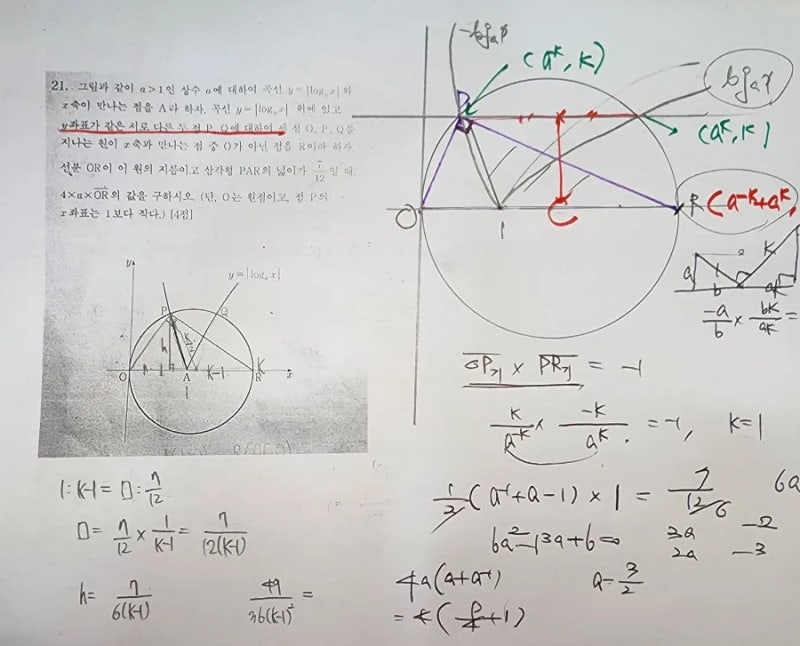 21. 그림과 같이 a>1인 상수 a에 대하여 곡선 y=|logₐx|와
x축이 만나는 점을 A라 하자. 곡선 y=|logₐx| 위에 있고
y좌표가 같은 서로 다른 두 점 P, Q에 대하여 세 점 O, P, Q를
지나는 원이 x축과 만나는 점 중 O가 아닌 점을 R이라 하자.
선분 OR이 이 원의 지름이고 삼각형 PAR의 넓이가 7/12일 때,
4×a×OR의 값을 구하시오. (단, O는 원점이고, 점 P의
x좌표는 1보다 작다.) [4점]
y
y=|logₐx|
P
Q
h
O
A
K-1
R
K
x
1
1:K-1=□:7/12
□=7/12×1/(K-1)=7/(12(K-1))
h=7/(6(K-1))
49/(36(K-1)²)=
-logₐx
(a^K, K)
logₐx
(a^K, K)
O
1
C
R
(a^-K+a^K,
a
1
b
K
-a/b×bK/aK=
OP기×PR기=-1
K/a^-K×-K/a^K=-1, K=1
1/2(a^-1+a-1)×1=7/12
6
6a
6a²-13a+6=0
3a -2
2a -3
4a(a+a^-1)
a=3/2
=4(9/4+1)